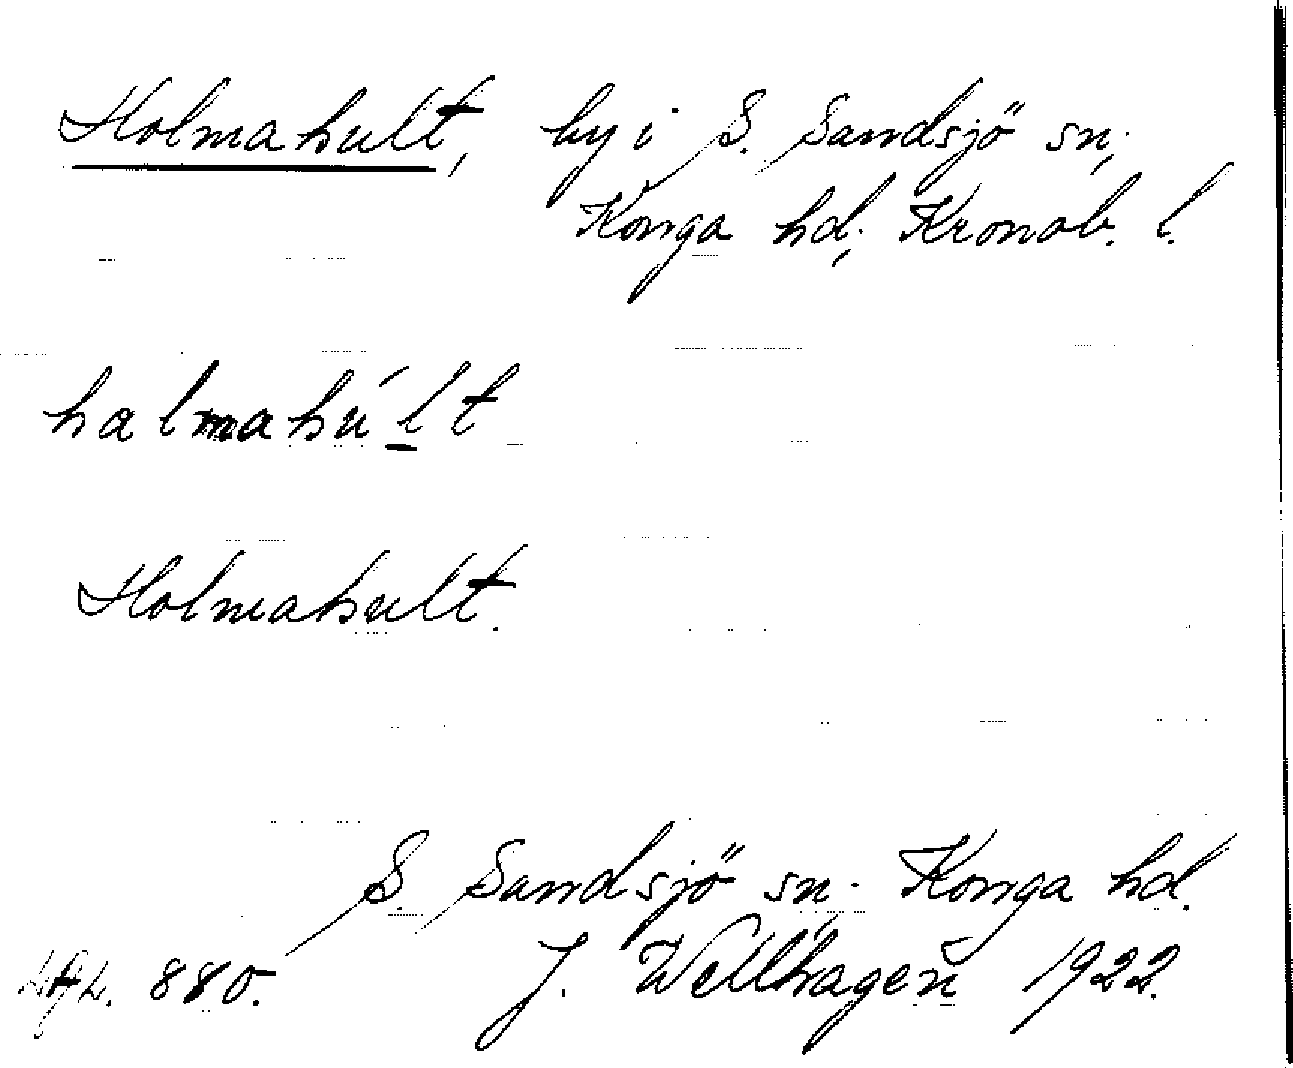 Holmahult, by i S. Sandsjö sn;
Konga hd; Kronob. l.
halmahú l t
Holmahult.
S. Sandsjö sn. Konga hd.
880. J. Wellhagen 1922.